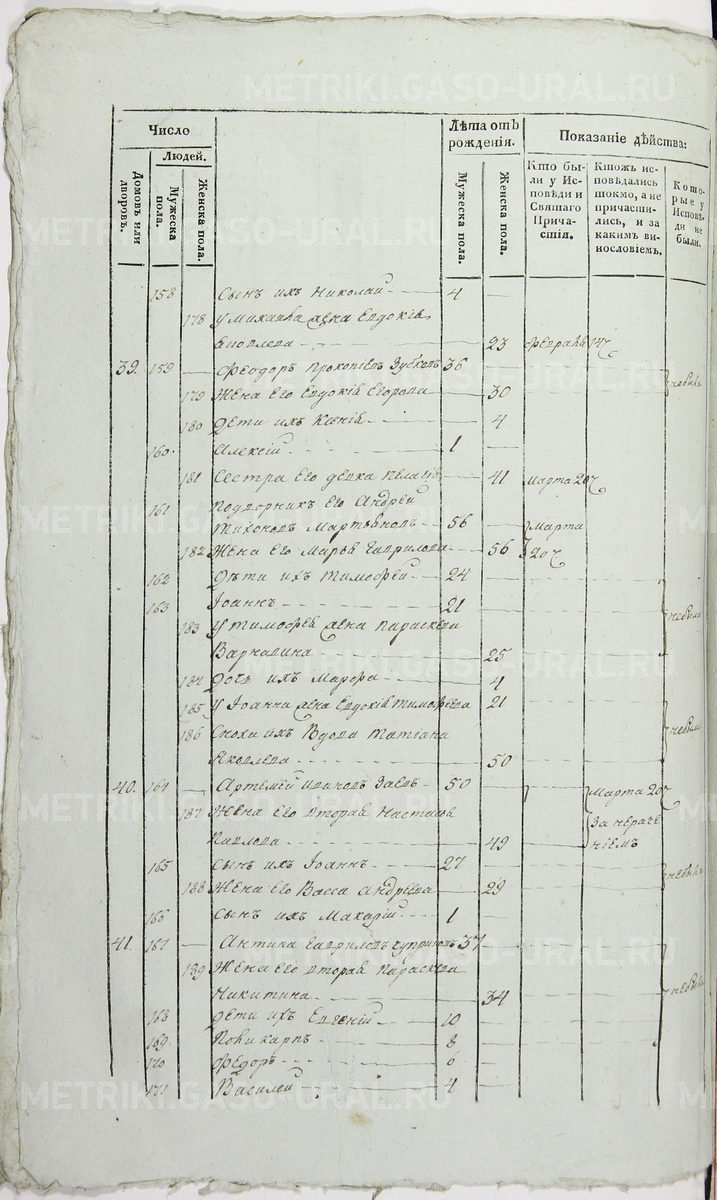 METRIKI.GASO-URAL.RU
Число
Людей.
Домовъ или дворовъ.
Мужеска пола.
Женска пола.
Лѣта отъ рожденія.
Мужеска пола.
Женска пола.
Показаніе дѣйства:
Кто были у Исповѣди и Святаго Причастія.
Ктожъ исповѣдались токмо, а не причастились, и за какимъ винословіемъ.
Которые у Исповѣди не были.
158 Сынъ ихъ Николай 4
178 У жена Евдокія
23 Февраля 14
39. 159 Феодоръ Прокопіевъ Зубковъ 36
179 Жена его Евдокія Егорова 30 небыли
180 Дети ихъ Ксенія 4
160. Алексій 1
181 Сестра его девка 41 Марта 20
161 Подворникъ его Андрей
Тихоновъ Мартьяновъ 56 Марта
182 Жена его Марья Гаврилова 56 20
162 Дѣти ихъ Тимофей 24
163 Іоаннъ 21 небыли
183 У Тимофея жена Параскева
25
184 Дочь ихъ Марфа 4
185 У Іоанна жена Евдокія Тимофеева 21
186 Сноха ихъ вдова Татіана небыли
Яковлева 50
40. 164 Артемій Ивановъ 50 Марта 20
187 Жена его вторая Настасья За нераче
Павлова 49 ніемъ
165 Сынъ ихъ Іоаннъ 27 небыли
188 Жена его Васса Андреева 29
166 Сынъ ихъ Макарій 1
41. 167 Гавриловъ Чуприновъ 37
189 Жена его вторая Параскева
Никитина 34 небыли
168 Дети ихъ Евгеній 10
169 Поликарпъ 8
170 Федоръ 6
171 Василей 4